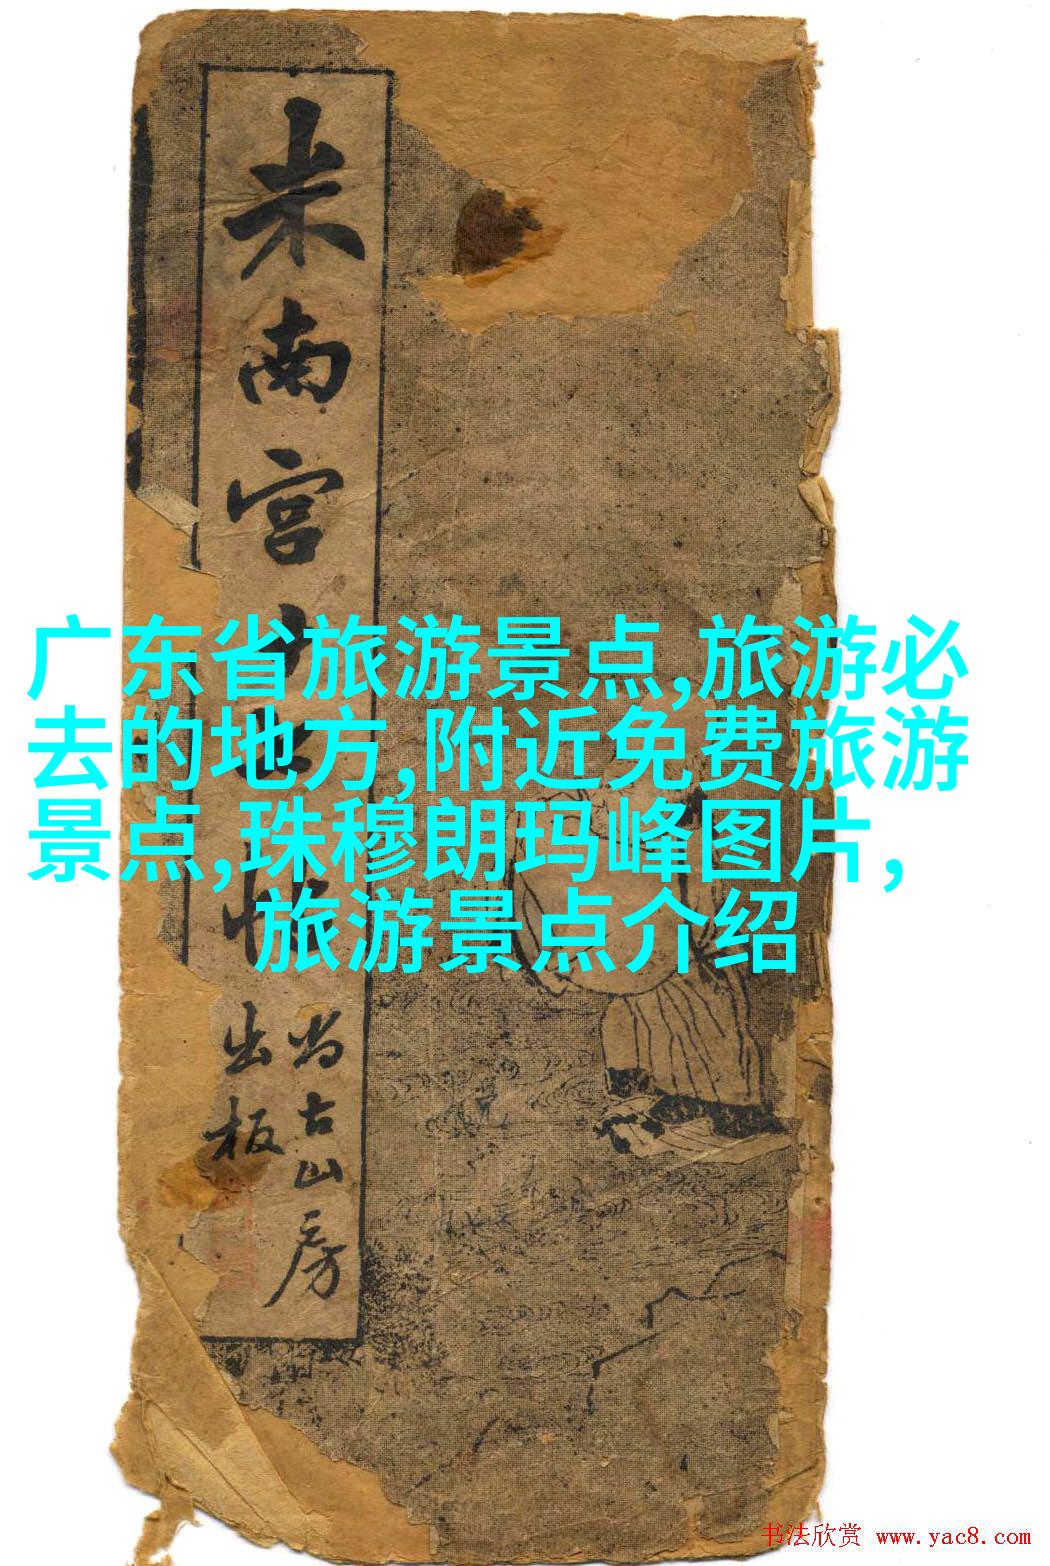 米南宫
尚古山房
出板
广东省旅游景点,旅游必
去的地方,附近免费旅游
景点,珠穆朗玛峰图片,
旅游景点介绍
书法欣赏 www.yac8.com